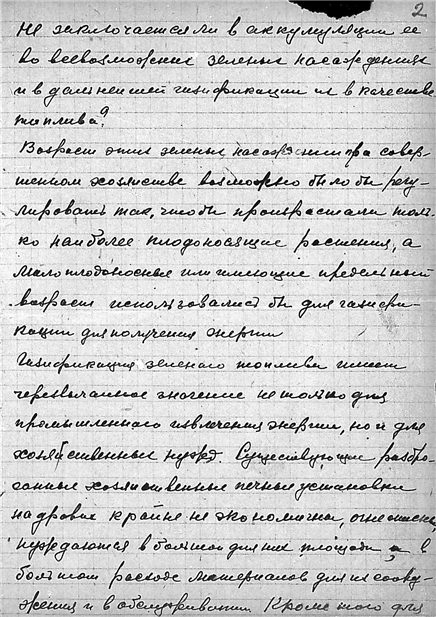 2
Не заключается ли в аккумуляции ее
во всевозможных зеленых насаждениях
и в дальнейшей газификации их в качестве
топлива?
Возраст этих зеленых насаждений при совер-
шенном хозяйстве возможно было бы регу-
лировать так, чтобы произрастали толь-
ко наиболее плодоносящие растения, а
малоплодоносные или имеющие предельный
возраст использовались бы для газифи-
кации для получения энергии
Газификация зеленого топлива имеет
черезвычайное значение не только для
промышленного извлечения энергии, но и для
хозяйственных нужд. Существующие разбро-
санные хозяйственные печные установки
на дровах крайне не экономичны, огнеопасны
нуждаются в большой для них площади и в
большом расходе материалов для их соору-
жения и в обслуживании. Кроме того для